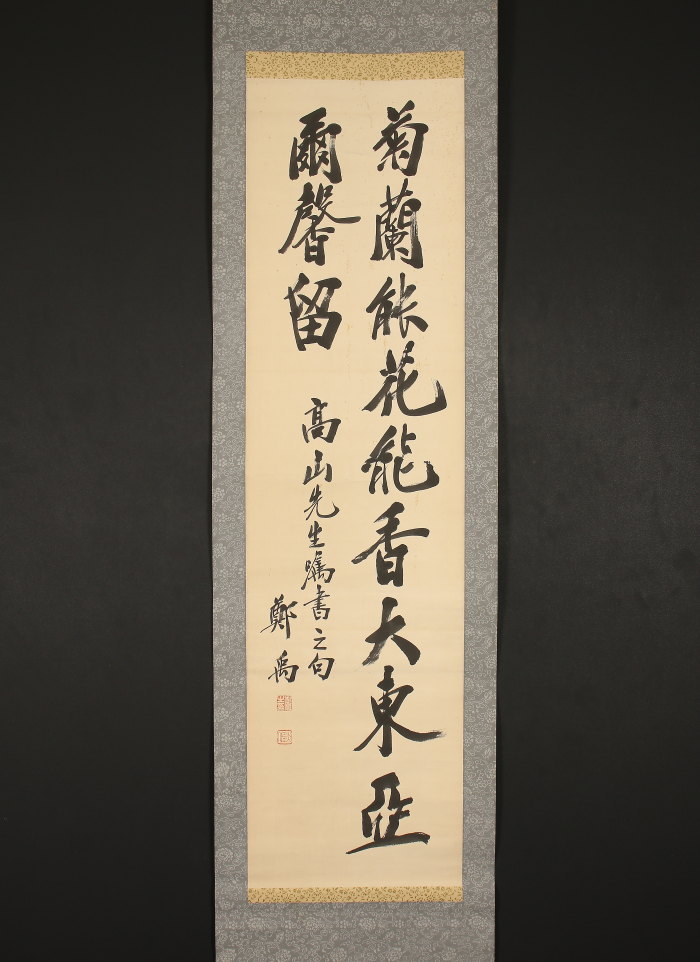 菊蘭能花能香大東亞
爾馨留
高山先生囑書之句
鄭禹